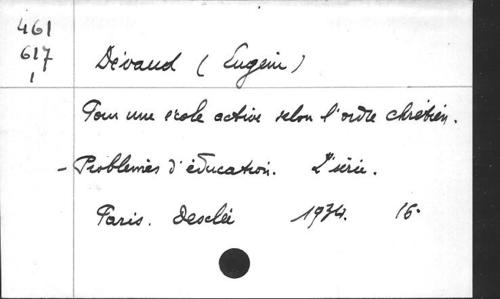 461
617
1
Dévaud (Eugène)
Pour une école active selon l'ordre chrétien.
- Problèmes d'éducation. 2e série.
Paris. Desclée 1934. 16°